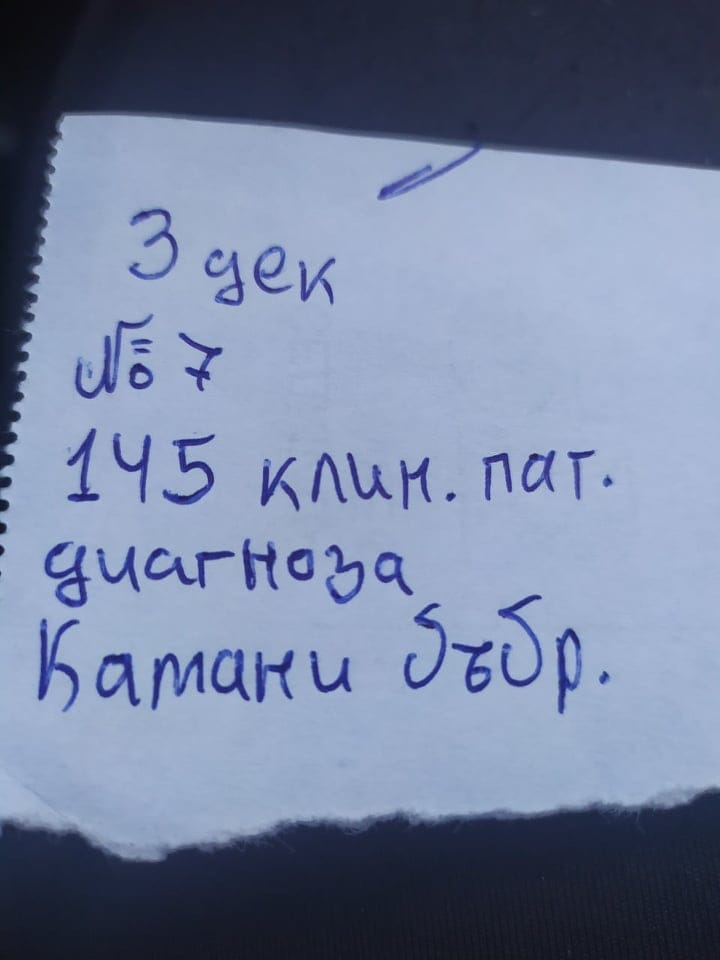 3 дек
№ 7
145 клин. пат.
диагноза
Камани бъбр.